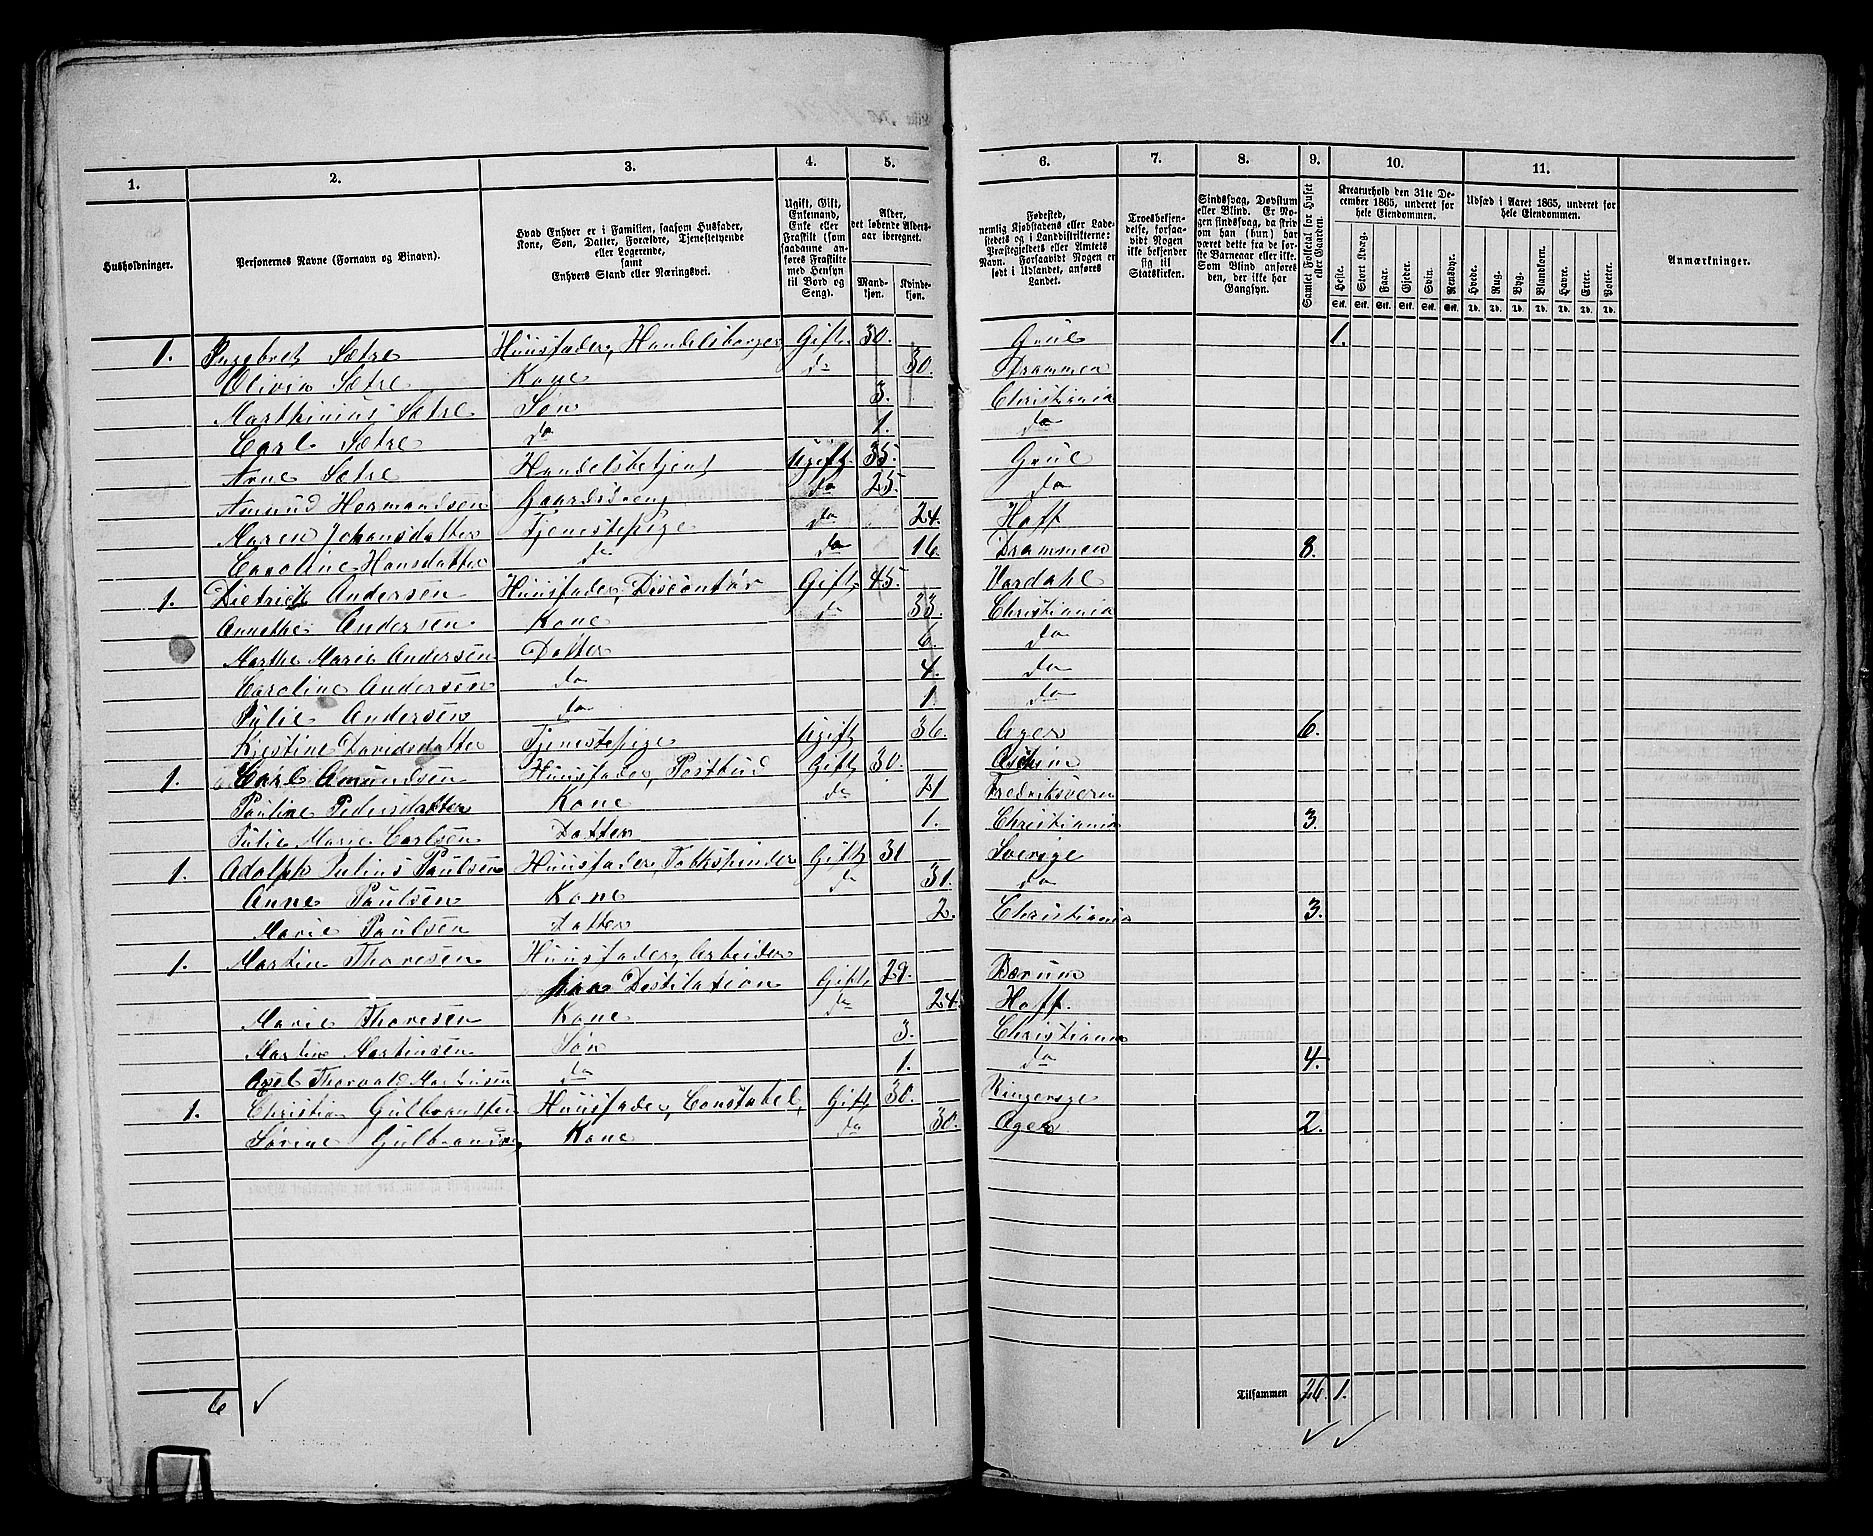 1. 2. 3. 4. 5. 6. 7. 8. 9. 10. 11.
Husholdninger.
Personernes Navne (Fornavn og Binavn).
Hvad Enhver er i Familien, saasom Husfader, Kone, Søn, Datter, Forældre, Tjenestetyende eller Logerende, samt Enhvers Stand eller Næringsvei.
Ugift, Gift, Enkemand, Enke eller Fraskilt (som saadanne anføres Fraskilte med Hensyn til Bord og Seng).
Alder, det løbende Aldersaar iberegnet.
Mandkjøn. Kvindekjøn.
Fødested, nemlig Kjøbstadens eller Ladestedets og i Landdistrikterne: Præstegjeldets eller Amtets Navn. Forsaavidt Nogen er født i Udlandet, anføres Landet.
Troesbekjendelse, forsaavidt Nogen ikke bekjender sig til Statskirken.
Sindssvag, Døvstum eller Blind. Er Nogen sindssvag, da skriv om han (hun) har været dette fra de første Barneaar eller ikke. Som Blind anføres den, der ikke har Gangsyn.
Samlet Folketal for Huset eller Gaarden.
Kreaturhold den 31te December 1865, underet for hele Eiendommen.
Heste. Stort Kvæg. Faar. Gjeder. Svin. Rensdyr.
Stk. Stk. Stk. Stk. Stk. Stk.
Udsæd i Aaret 1865, underet for hele Eiendommen.
Hvede. Rug. Byg. Blandkorn. Havre. Erter. Poteter.
Td. Td. Td. Td. Td. Td. Td.
Anmærkninger.
1. Ingebret Sætre Huusfader, Handelsborger Gift 30. Grue 1.
Olivia Sætre Kone do 30. Drammen
Marthinius Sætre Søn 3. Christiania
Carl Sætre do 1. do
Arne Sætre Handelsbetjent Ugift 35. Grue
Amund Hermandsen Gaardsdreng do 25. do
Maren Johansdatter Tjenestepige do 24. Hoff
Caroline Hansdatter do do 16. Drammen 8.
1. Dietrich Andersen Huusfader, Discontør Gift 45. Vardahl
Annethe Andersen Kone do 33. Christiania
Marthe Marie Andersen Datter 6. do
Caroline Andersen do 4. do
Julie Andersen do 1 do
Kjestine Davidsdatter Tjenestepige Ugift 36. Ager 6.
1. Carl Amundsen Huusfader, Postbud Gift 30. Aschim
Pauline Pedersdatter Kone do 21 Fredriksvern
Julie Marie Carlsen Datter 1. Christiania 3.
1. Adolph Julius Paulsen Huusfader, Gift 31 Sverige
Anne Paulsen Kone do 31. do
Marie Paulsen Datter 2. Christiania 3.
1. Martin Thoresen Huusfader, Arbeider
paa Destilation Gift 29. Bærum
Marie Thoresen Kone do 24. Hoff.
Martin Martinsen Søn 3. Christiania
Axel Thorvald Martinsen do 1. do 4.
1. Christian Gulbransen Huusfader, Constabel, Gift 30. Ringerige
Sørine Gulbransen Kone do 30. Ager 2.
6 Tilsammen 26. 1.